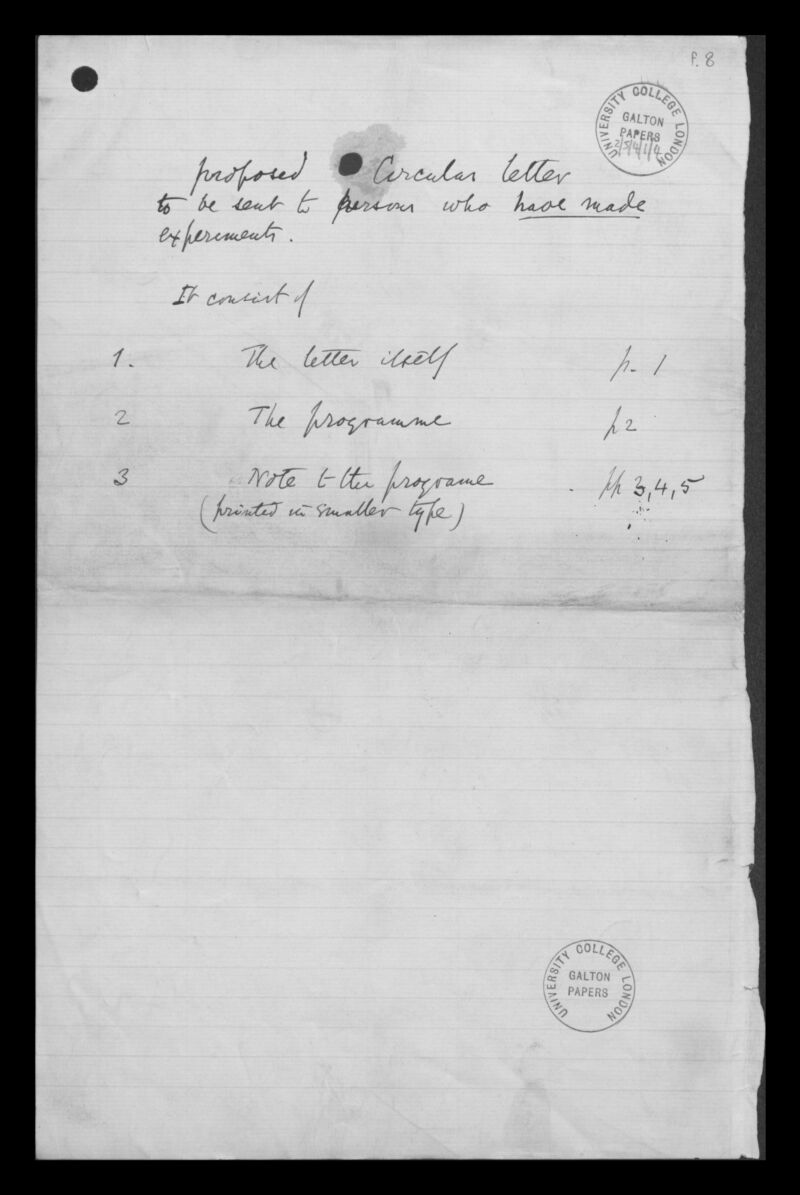 f. 8
UNIVERSITY COLLEGE LONDON
GALTON
PAPERS
proposed Circular letter
to be sent to persons who have made
experiments.
It consist of
1. The letter itself p. 1
2 The programme p 2
3 Note to the programe pp 3, 4, 5
(printed in smaller type)
UNIVERSITY COLLEGE LONDON
GALTON
PAPERS